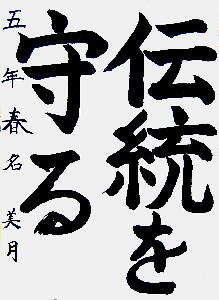 伝統を
守る
五年春名美月